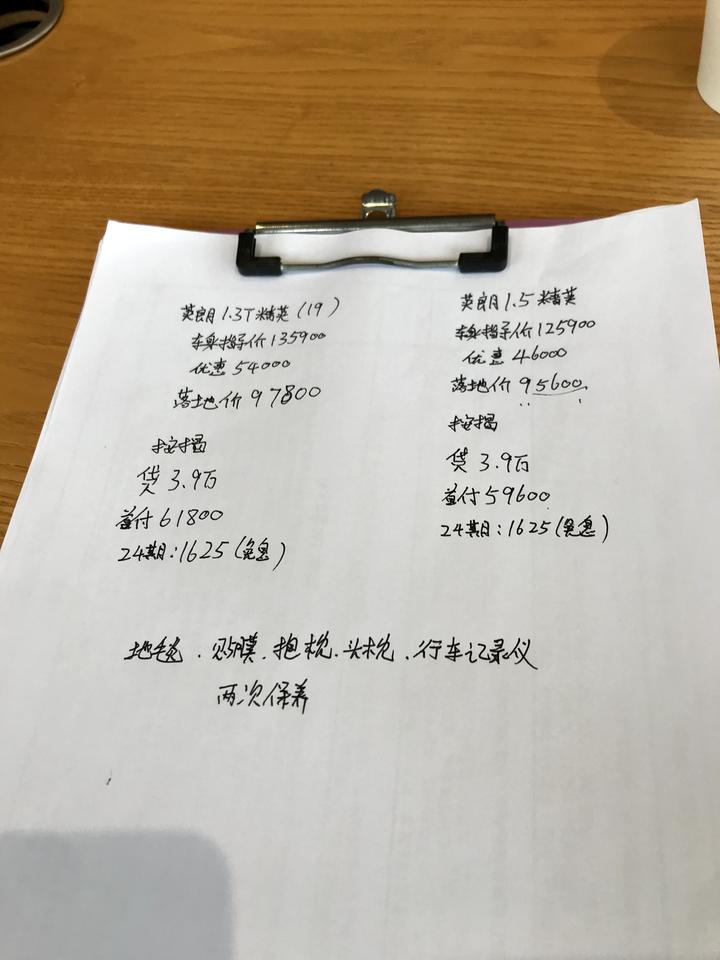 英朗1.3T精英(19)
车身指导价135900
优惠54000
落地价97800
按揭
贷3.9万
首付61800
24期:1625(免息)
英朗1.5精英
车身指导价125900
优惠46000
落地价95600
按揭
贷3.9万
首付59600
24期:1625(免息)
地毯、贴膜、抱枕、头枕、行车记录仪
两次保养